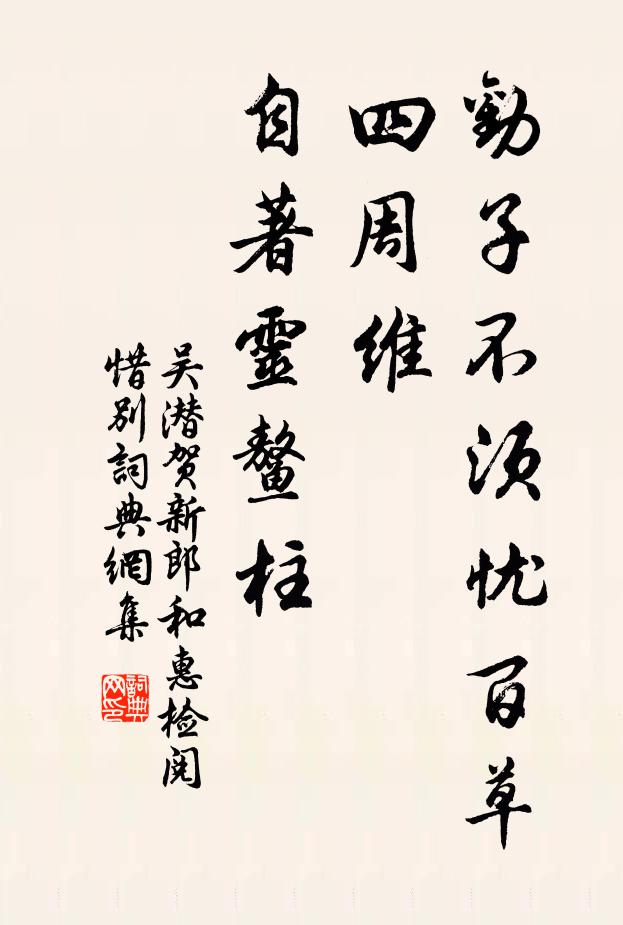 勸子不须忧百草
四周维
自著靈鳌柱
吴潜贺新郎和惠检阅
惜别詞典網集
詞典
网印